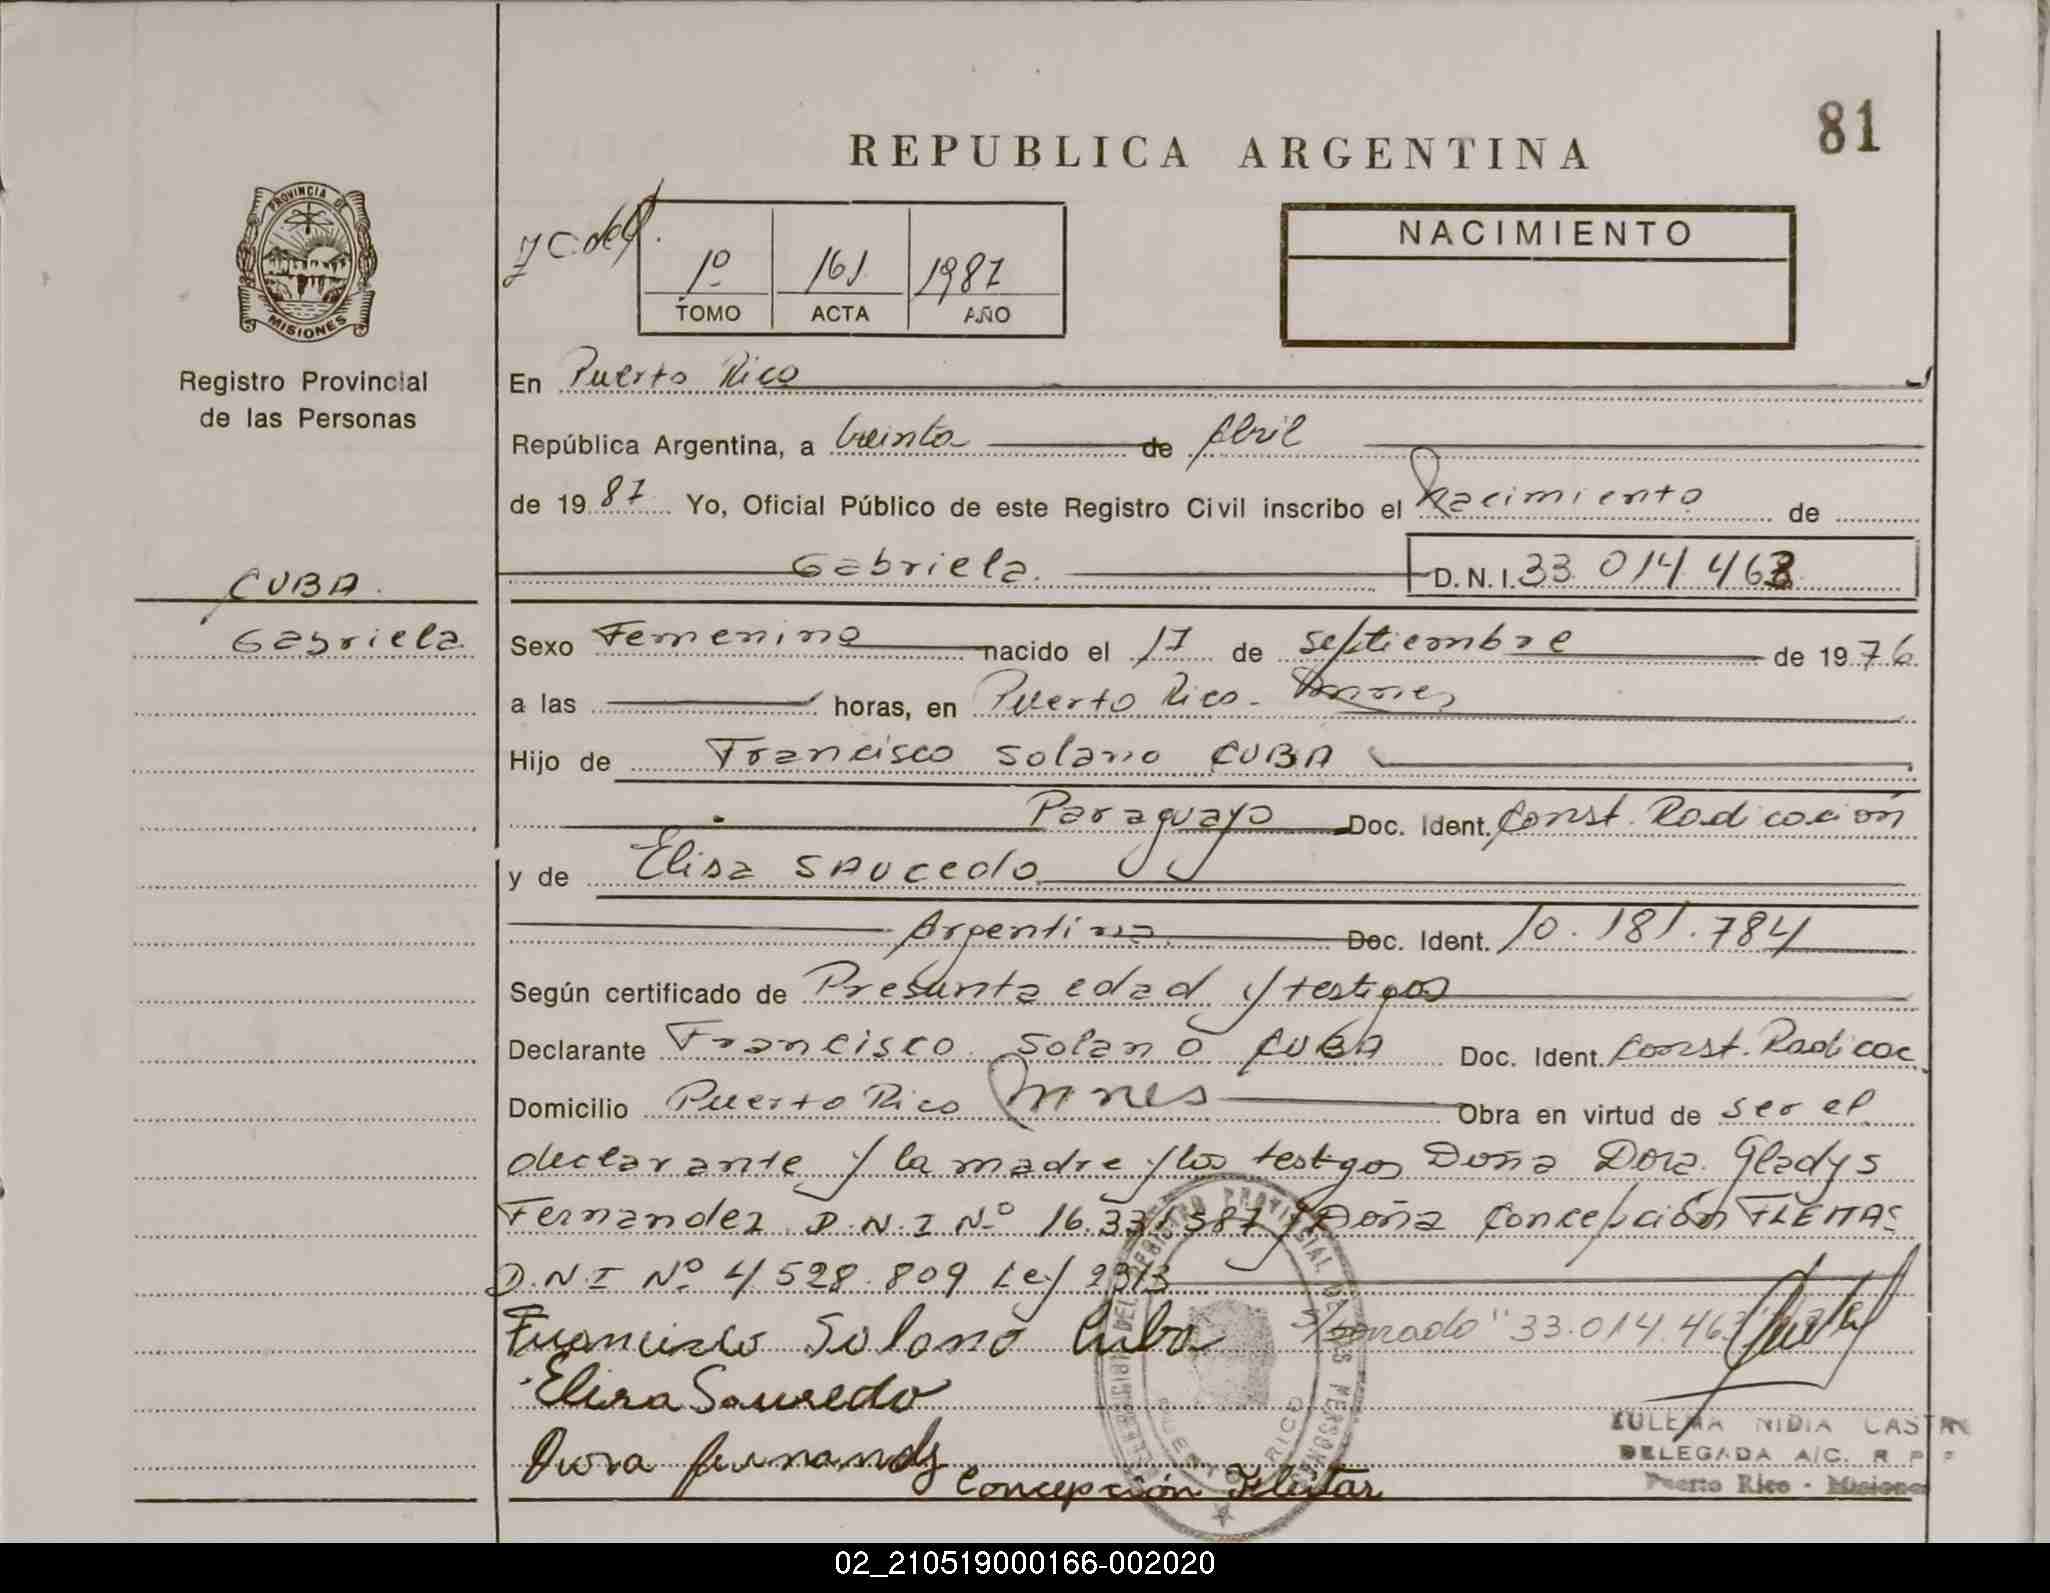 81
REPUBLICA ARGENTINA
PROVINCIA DE
MISIONES
Registro Provincial
de las Personas
1º 161 1987
TOMO ACTA AÑO
NACIMIENTO
En Puerto Rico
República Argentina, a treinta de Abril
de 1987 Yo, Oficial Público de este Registro Civil inscribo el Nacimiento de
Gabriela. D.N.I. 33 014 463
CUBA.
Gabriela
Sexo Femenino nacido el 17 de septiembre de 1976
a las horas, en Puerto Rico - Mnes
Hijo de Francisco Solano CUBA
Paraguayo Doc. Ident. Const. Radicación
y de Elisa SAUCEDO
Argentina Doc. Ident. 10.181.784
Según certificado de Presunta edad y testigos
Declarante Francisco Solano CUBA Doc. Ident. Const. Radicac
Domicilio Puerto Rico Mnes Obra en virtud de ser el
declarante y la madre y los testigos Doña Dora Gladys
Fernandez D.N.I Nº 16.331.387 y Doña Concepción FLEITAS
D.N.I Nº 4.528.809 Ley 2313
Francisco Solano Cuba S/borrado "33.014.463"
Elisa Saucedo
Dora Fernandez
Concepción Fleitas
PUERTO RICO
ZULEMA NIDIA CASTRO
DELEGADA A/C. R P P
Puerto Rico - Misiones
02_210519000166-002020